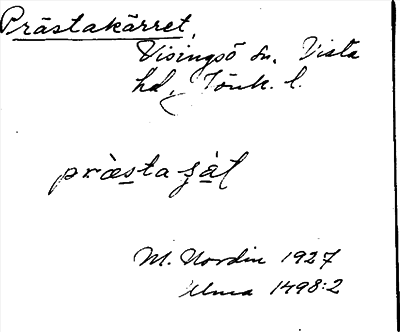 Prästakärret,
Visingsö sn. Vista
hd, Jönk. l.
præsta
M. Nordin 1927
Ulma 1498:2